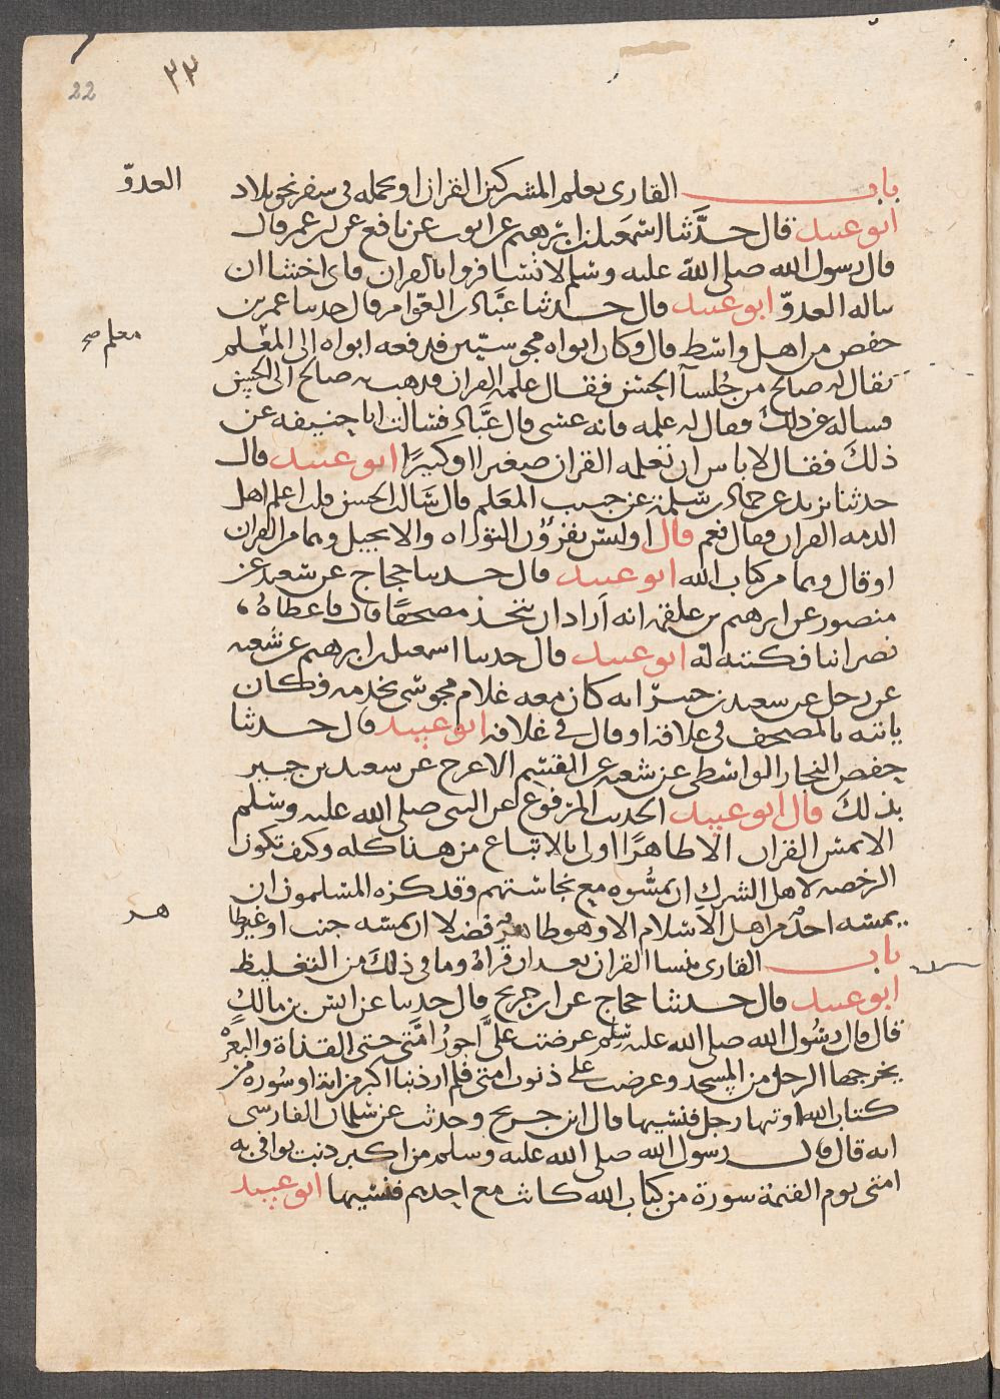 22
٣٢
باب القارى يعلم المشركين القران او يحمله فى سفر نحو بلاد
العدوّ
ابو عبيد قال حدَّثنا اسمعيل بن ابرهيم عن ايوب عن نافع عن ابن عمر قال
قال رسول الله صلى الله عليه وسلم لا تسافروا بالقران فانى اخشا ان
يناله العدوّ ابو عبيد قال حدثنا عبَّاد بن العوّام قال حدثنا عمر بن
حفص من اهل واسط قال وكان ابواه مجوسيّين فدفعه ابواه الى المعلم
معلم صح
يقال له صالح من جُلساء الحسن فقال علمه القران فذهب به صالح الى الحسن
فساله عن ذلك فقال له علمه فانه عسى قال عبَّاد فسالت ابا حنيفه عن
ذلك فقال لا باس ان تعلمه القران صغيرا او كبيرًا ابو عبيد قال
حدثنا يزيد عن حماد بن سلمة عن حبيب المعلم قال سَالت الحسن قلت اعلم اهل
الذمه القران فقال نعم قال اوليس يقرؤن التوراه والانجيل وهما من القران
او قال وهما من كتاب الله ابو عبيد قال حدثنا حجاج عن شعبه عن
منصور عن ابرهيم عن علقمه انه اراد ان يتخذ مصحفًا قال فاعطاهُ
نصرانيا فكتبه له ابو عبيد قال حدثنا اسمعيل بن ابرهيم عن شعبه
عن رجل عن سعيد بن جبير انه كان معه غلام مجوسى يخدمه فكان
ياتيه بالمصحف فى علاقته او قال فى غلافه ابو عبيد قال حدثنا
حفص النجار الواسطى عن شعبه عن القسم الاعرج عن سعيد بن جبير
بذلك قال ابو عبيد الحديث المرفوع عن النبى صلى الله عليه وسلم
الا يمس القران الا طاهرًا اولى بالاتباع من هذا كله وكيف تكون
الرخصه لاهل الشرك ان يمسُّوه مع نجاستهم وقد كره المسلمون ان
يمسه احدٌ من اهل الاسلام الا وهو طاهر فضلا ان يمسه جنب او غير طا
هر
باب القارى ينسا القران بعد ان قراهُ وما فى ذلك من التغليظ
ابو عبيد قال حدثنا حجاج عن ابن جريج قال حدثنا عن انس بن مالك
قال قال رسُول الله صلى الله عليه وسلم عرضت علىَّ اجورُ امَّتى حتى القذاة والبعرْ
يخرجها الرجل من المسجد وعرضت على ذنوب امتى فلم ار ذنبا اكبر من اية او سُوره من
كتاب الله اوتيها رجل فنسيها قال ابن جريج وحدثت عن سلمان الفارسى
انه قال قال رسول الله صلى الله عليه وسلم من اكبر ذنب توافى به
امتى يوم القيمة سورة من كتاب الله كانت مع احدهم فنسيها ابو عبيد